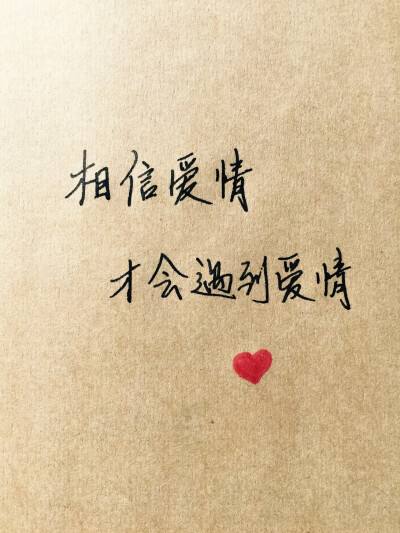 相信爱情
才会遇到爱情